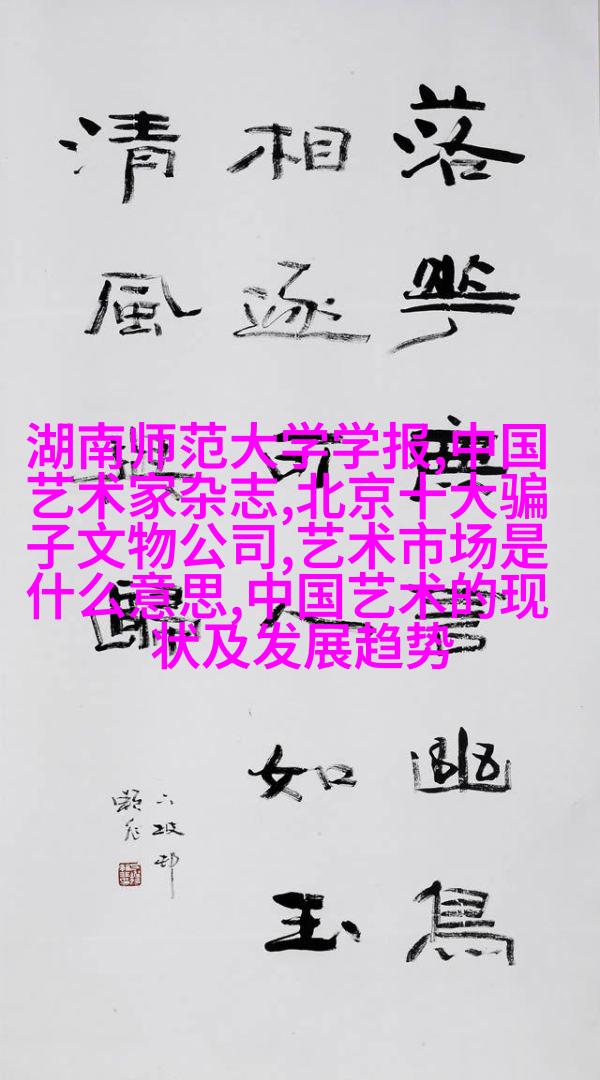 落華無言幽鳥
相逐可人如玉
清風與歸
湖南师范大学学报,中国
艺术家杂志,北京十大骗
子文物公司,艺术市场是
什么意思,中国艺术的现
状及发展趋势